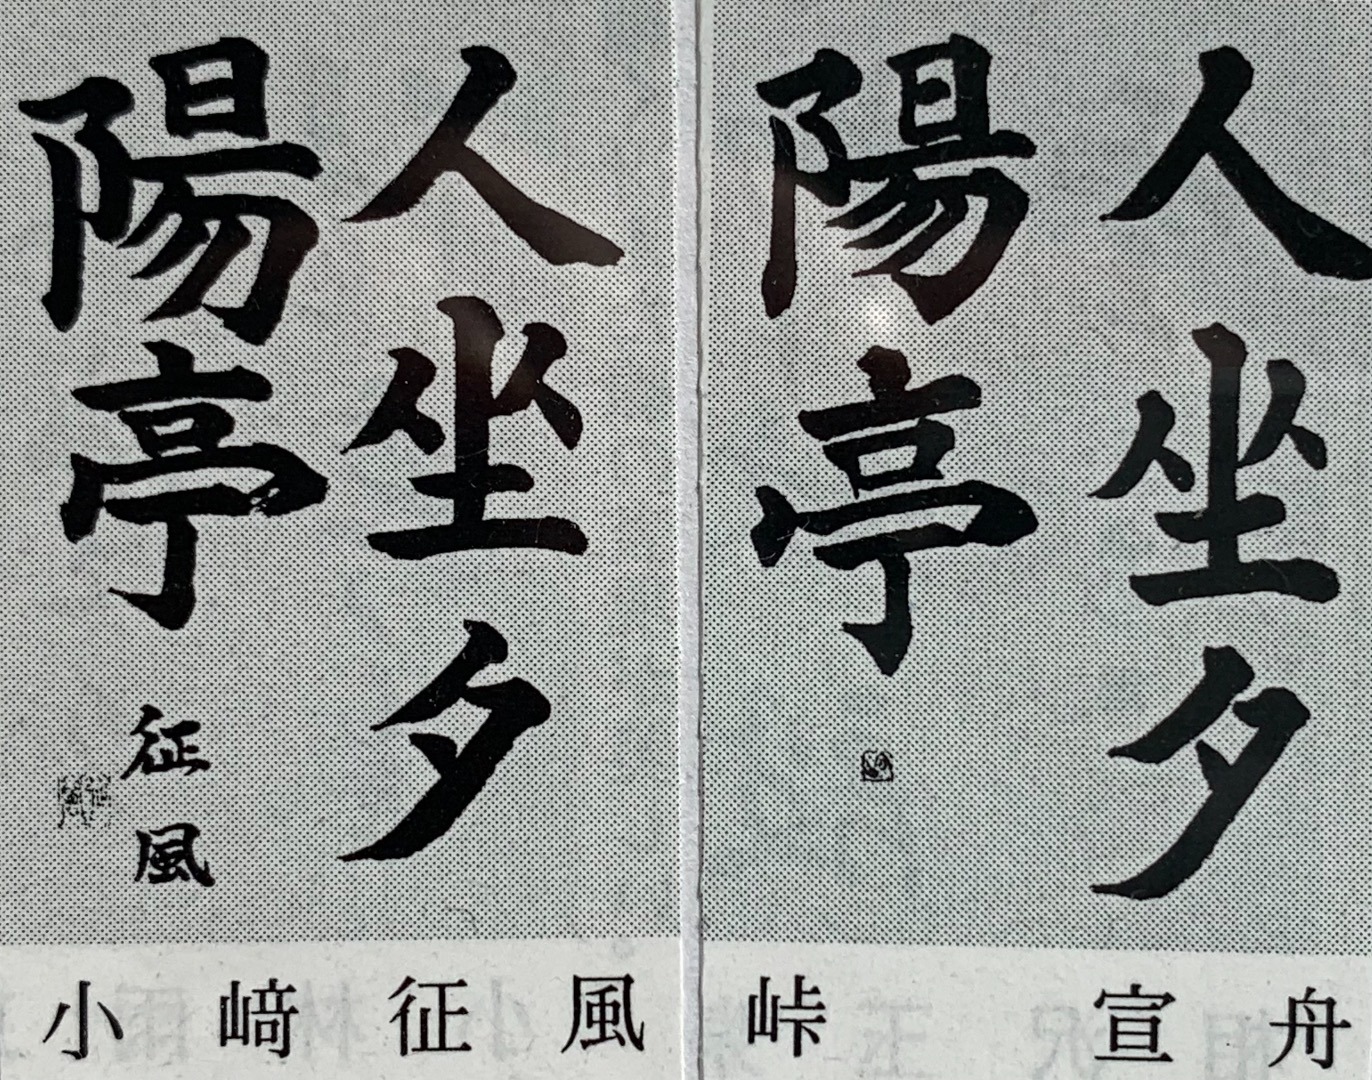 人坐夕
陽亭
峠 宣舟
人坐夕
陽亭
征風
小﨑征風